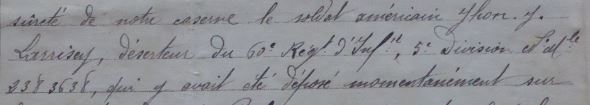 sûreté de notre caserne le soldat américain Jhon. J.
Larrisey, déserteur du 60e Régt d'Infie, 5e Division Nal
2383638, qui y avait été déposé momentanément sur